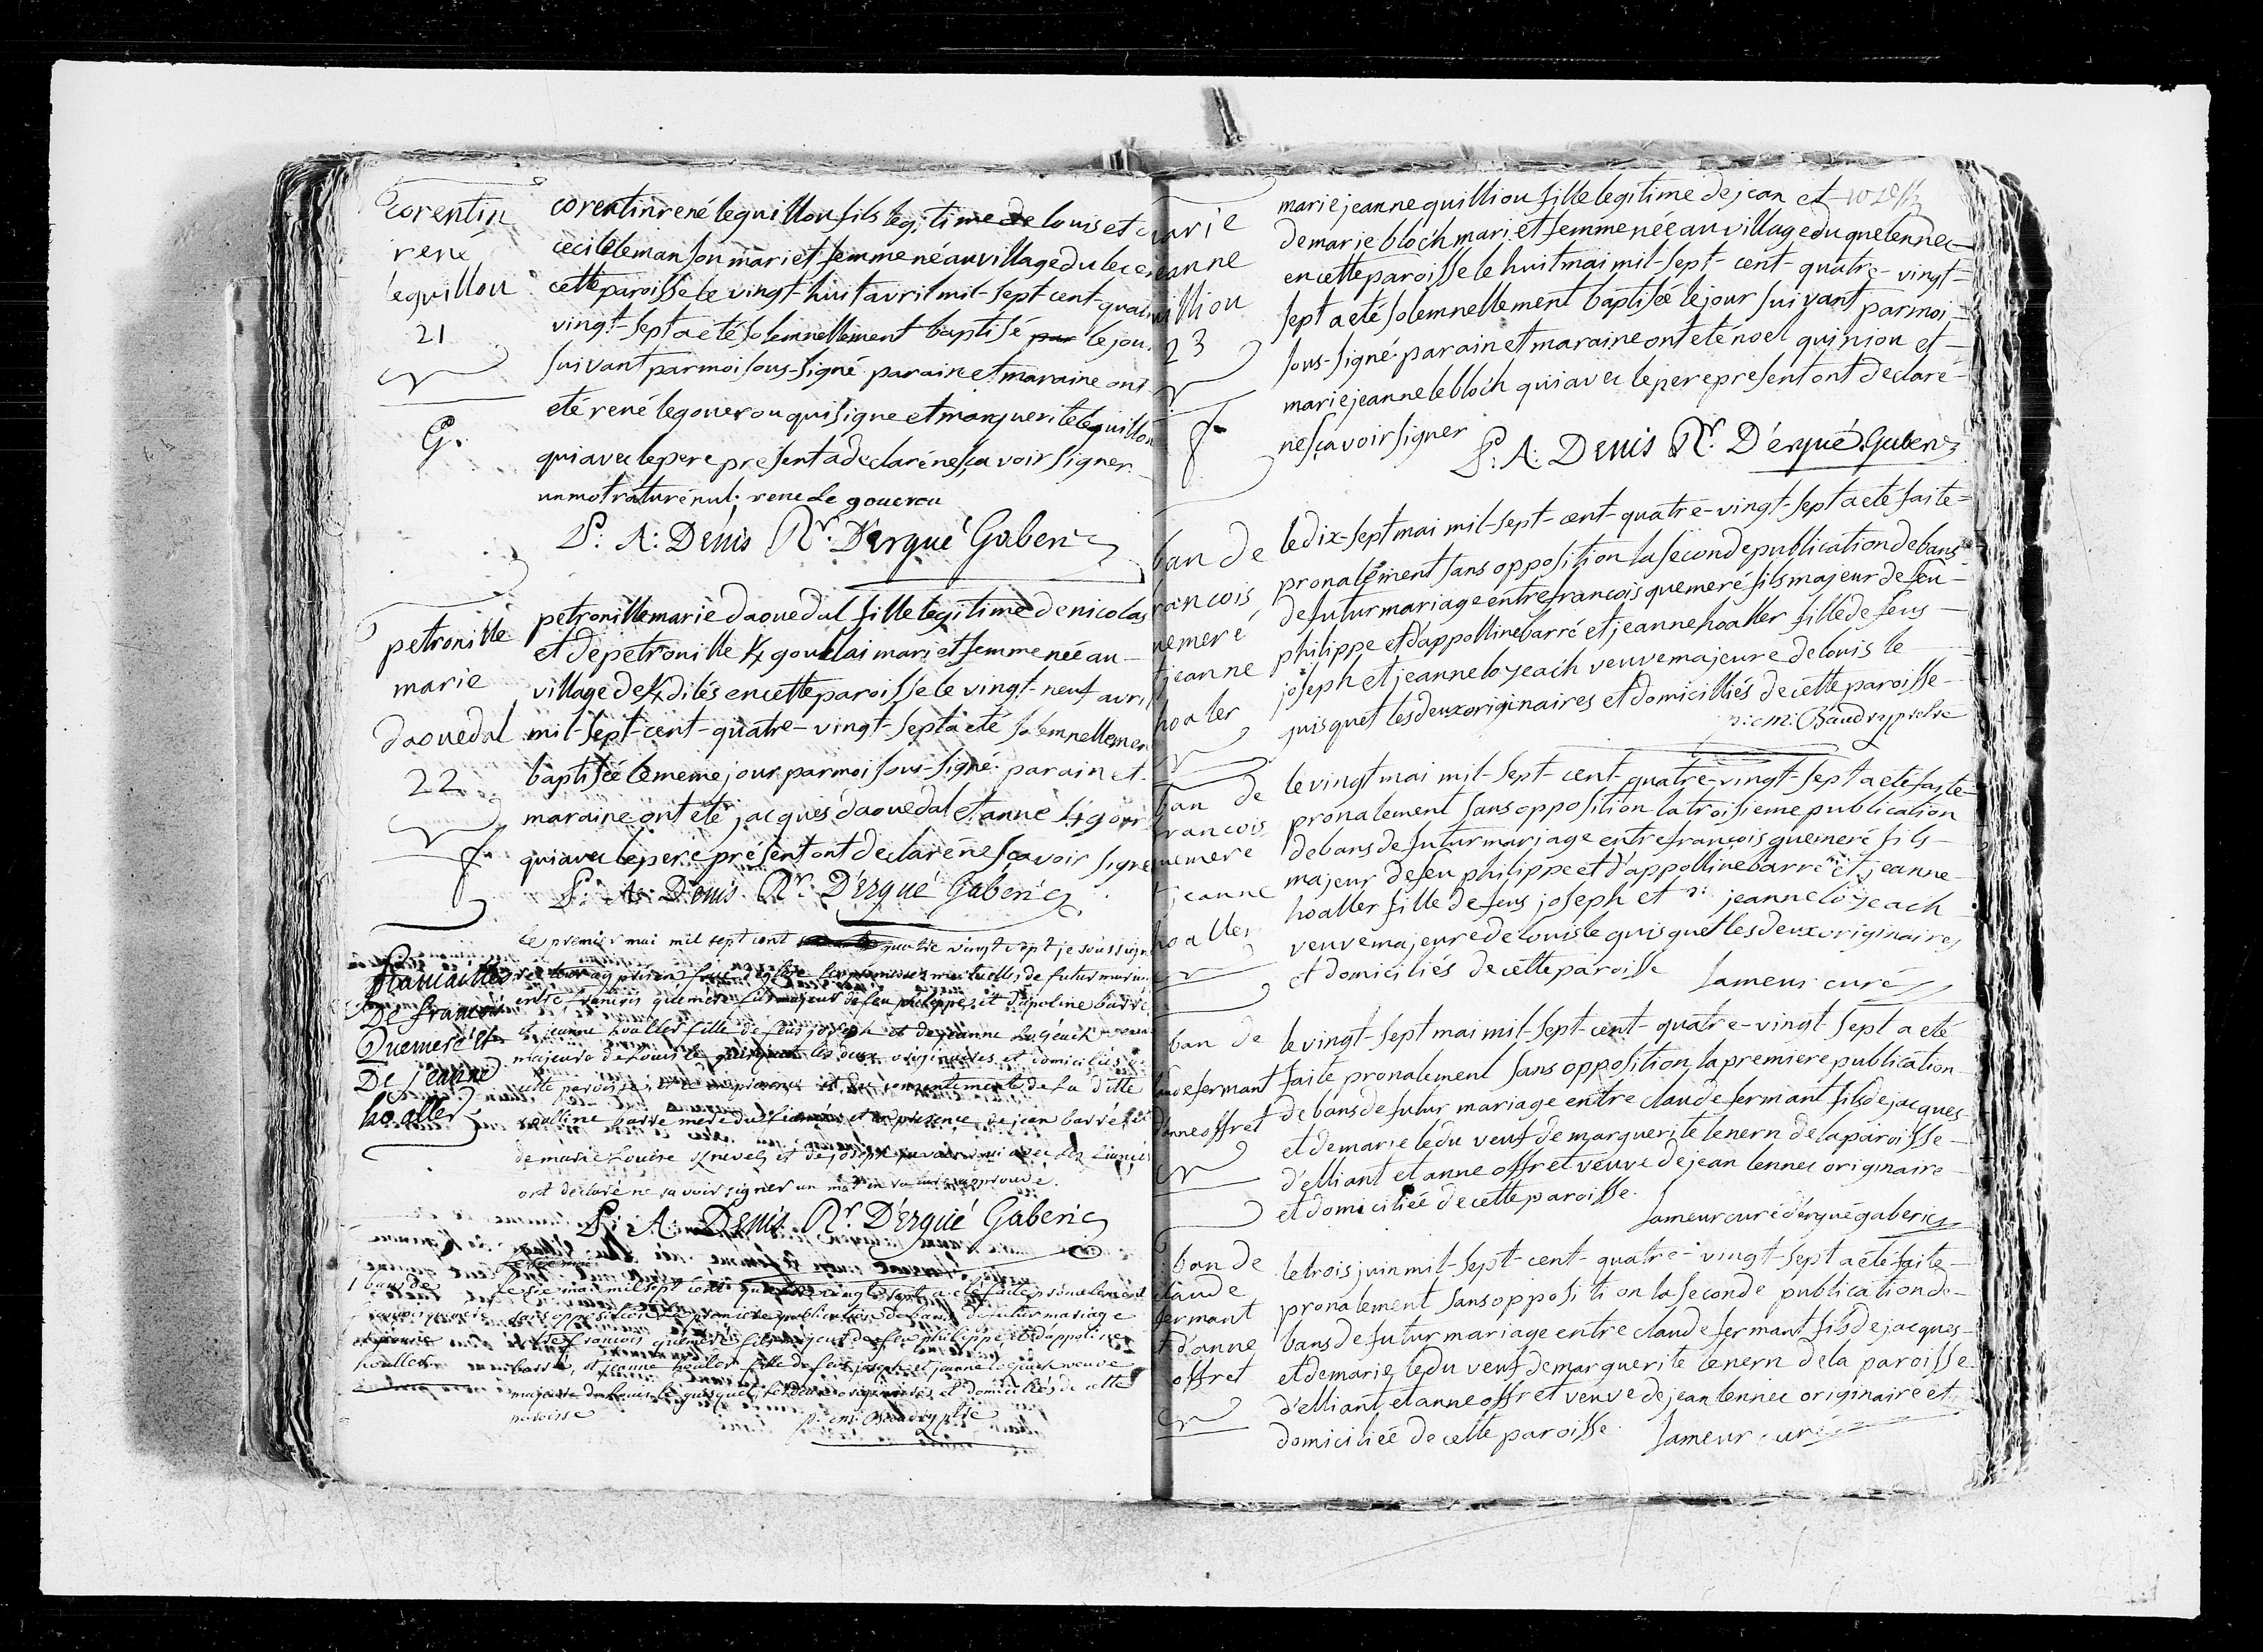 corentin
rené
leguillou
21
G.
corentin rené leguillou fils legitime de louis et
cecile le manson mari et femme né au village du
cette paroisse le vingt-huit avril mil-sept-cent-quatre
vingt-sept a été solemnellement baptisé par le jour
suivant par moi sous-signé. parain et maraine ont
eté rené legouerou qui signe et marguerite leguillou
qui avec le pere présent a declaré ne sçavoir signer.
un mot raturé nul. rene Le gouerou
P: A: Denis Rr. D'ergué Gaberic
petronille
marie
daouedal
22
f
petronille marie daouedal fille legitime de nicolas
et de petronille K/gourlai mari et femme née au
village de K/dilés en cette paroisse le vingt-neuf avril
mil-sept-cent-quatre-vingt-sept a eté solemnellement
baptisée le meme jour par moi sous-signé. parain et
maraine ont eté jacques daouedal et anne K/gour
qui avec le pere présent ont declaré ne sçavoir signer
P: A: Denis Rr. D'ergué Gaberic
fiancailles
De francois
Quemeré et
De jeanne
hoaller
le premier mai mil sept cent quatre vingt sept je soussigné
recteur ay pris en face d'église les promesses mutuelles de futur mariage
entre francois quemeré fils majeur de feu philippe et d'apoline barré
et jeanne hoaller fille de feus joseph et de jeanne lozeach
majeure de louis le quisquet les deux originaires et domiciliés de
cette paroisse en presence et du consentement de la ditte
apolline barré mere du fiancé et en presence de jean barré
de marie K/nevez et de joseph qui avec les fiancés
ont declaré ne savoir signer un mot en rature approuvé.
P: A: Denis Rr. D'ergué Gaberic
1 bans de
francois quemeré
et jeanne
hoaller
le six mai mil sept cent quatre vingt sept a eté faite prônalement
sans opposition la premiere publication de bans de futur mariage
entre francois quemeré fils majeur de feu philippe et d'appoline
barré, et jeanne hoaler fille de feus joseph et jeanne lozeach veuve
majeure de louis le quisquet, les deux originaires et domiciliés de cette
paroisse
marie
jeanne
quilliou
23
f
marie jeanne quilliou fille legitime de jean et
de marie bloc'h mari et femme née au village du quelennec
en cette paroisse le huit mai mil-sept-cent-quatre-vingt-
sept a eté solemnellement baptisée le jour suivant par moi
sous-signé. parain et maraine ont eté noel quiniou et
marie jeanne lebloc'h qui avec le pere présent ont declaré
ne sçavoir signer
P: A: Denis Rr. D'ergué Gaberic
ban de
francois
quemeré
et jeanne
hoaler
le dix-sept mai mil-sept-cent-quatre-vingt-sept a eté faite
pronalement sans opposition la seconde publication de bans
de futur mariage entre francois quemeré fils majeur de feu
philippe et d'appolline barré et jeanne hoaller fille de feus
joseph et jeanne lozeach veuve majeure de louis le
quisquet les deux originaires et domicilliés de cette paroisse
ban de
francois
quemeré
et jeanne
hoaller
le vingt mai mil-sept-cent-quatre-vingt-sept a eté faite
pronalement sans opposition la troisieme publication
de bans de futur mariage entre francois quemeré fils
majeur de feu philippe et d'appolline barré et jeanne
hoaller fille de feus joseph et jeanne lozeach
veuve majeure de louis le quisquet les deux originaires
et domiciliés de cette paroisse Lameur curé
ban de
claude fermant
d'anne offret
le vingt-sept mai mil-sept-cent-quatre-vingt-sept a eté
faite pronalement sans opposition la premiere publication
de bans de futur mariage entre claude fermant fils de jacques
et de marie ledu veuf de marguerite lenern de la paroisse
d'elliant et anne offret veuve de jean lennec originaire
et domiciliée de cette paroisse.
Lameur curé d'ergué gaberic
ban de
claude
fermant
et d'anne
offret
le trois juin mil-sept-cent-quatre-vingt-sept a eté faite
pronalement sans opposition la seconde publication de
bans de futur mariage entre claude fermant fils de jacques
et de marie ledu veuf de marguerite lenern de la paroisse
d'elliant et anne offret veuve de jean lennec originaire et
domiciliée de cette paroisse Lameur curé